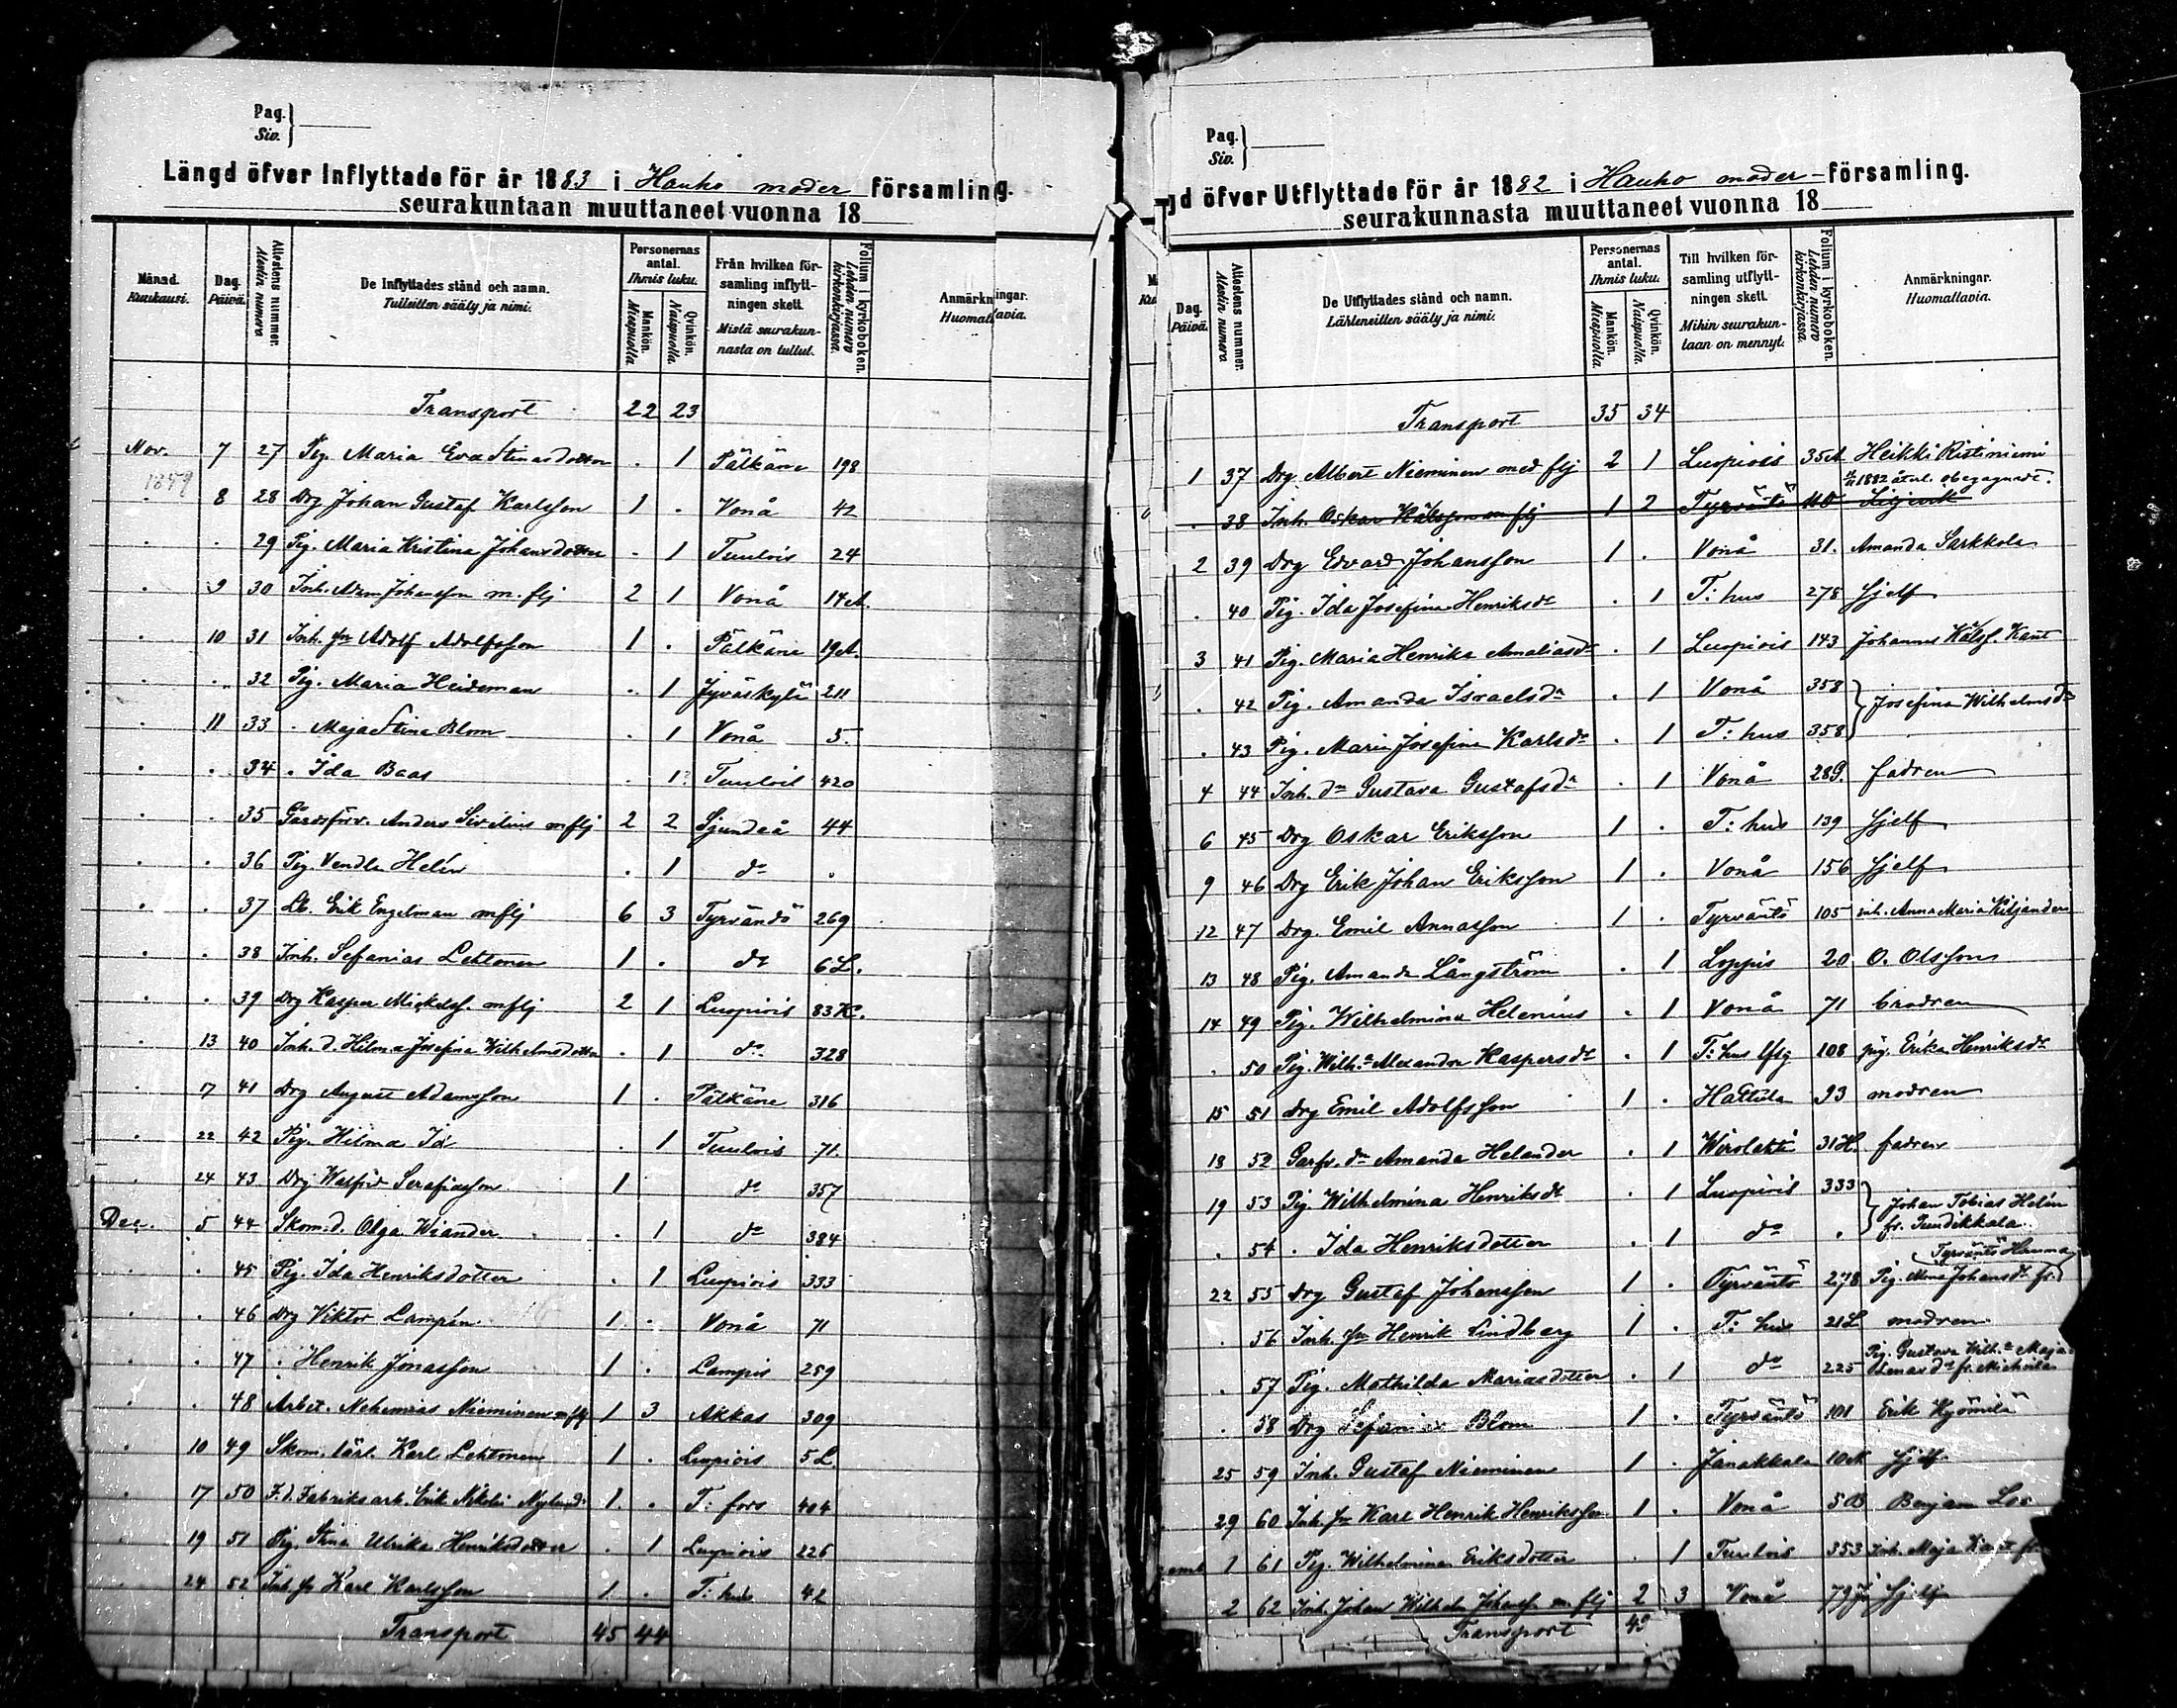 Pag.
Siv.
Längd öfver Inflyttade för år 1883 i Hauho moder församling.
seurakuntaan muuttaneet vuonna 18
Månad. Kuukausi.
Dag. Päivä.
Attestens nummer. Alestin numero
De Inflyttades stånd och namn. Tulleitten sääly ja nimi.
Personernas antal. Ihmis luku.
Mankön. Miespuolia.
Qvinkön. Naispuolia.
Från hvilken församling inflyttningen skett. Mistä seurakunnasta on tullut.
Folium i kyrkoboken. Lehden numero kirkonkirjassa.
Anmärkningar. Huomattavia.
Transport 22 23
Nov. 7 27 Pig. Maria Eva Stinasdotter . 1 Pälkäne 198
1859
. 8 28 Drg Johan Gustaf Karlsson 1 . Vonå 42
. . 29 Pig. Maria Kristina Johansdotter . 1 Tuulois 24
. 9 30 Inh. Adam Johansson m. flj 2 1 Vonå 14A.
. 10 31 Inh. sn Adolf Adolfsson 1 . Pälkäne 19A.
. . 32 Pig. Maria Heideman . 1 Jyväskylä 211
. 11 33 . Maja Stina Blom . 1 Vonå 5.
. . 34 . Ida Baas . 1 Tuulois 420
. . 35 Gårdsförv. Anders Sivelius m flj 2 2 Sjundeå 44
. . 36 Pig. Vendla Helén . 1 do .
. . 37 Lb. Erik Engelman m flj 6 3 Tyrvändö 269
. . 38 Inh. Sefanias Lehtonen 1 . do 6L.
. . 39 Drg Kasper Mickelss. m flj 2 1 Luopiois 83K.
. 13 40 Inh. d. Hilma Josefina Wilhelmsdotter . 1 do 328
. 17 41 Drg August Adamsson 1 . Pälkäne 316
. 22 42 Pig. Hilma Id . 1 Tuulois 71.
. 24 43 Drg Walfrid Serafiasson 1 do 357
Dec. 5 44 Skom. d. Olga Wiander . 1 do 384
. . 45 Pig. Ida Henriksdotter . 1 Luopiois 333
. . 46 Drg Viktor Lampén 1 . Vonå 71
. . 47 . Henrik Jonasson 1 . Lampis 259
. . 48 Arbet. Nehemias Nieminen m flj 1 3 Akkas 309
. 10 49 Skom. lärl. Karl Lehtonen 1 . Luopiois 5L.
. 17 50 F. d. Fabriksarb. Erik Nikolai Nylund 1 . T: fors 404
. 19 51 Pig. Stina Ulrika Henriksdotter . 1 Luopiois 226
. 24 52 Inh. sn Karl Karlsson 1 . T: hus 42
Transport 45 44
Pag.
Siv.
gd öfver Utflyttade för år 1882 i Hauho moder-församling.
seurakunnasta muuttaneet vuonna 18
Dag. Päivä.
Attestens nummer. Alestin numero
De Utflyttades stånd och namn. Lähteneitten sääly ja nimi.
Personernas antal. Ihmis luku.
Mankön. Miespuolia.
Qvinkön. Naispuolia.
Till hvilken församling utflyttningen skett. Mihin seurakuntaan on mennyt.
Folium i kyrkoboken. Lehden numero kirkonkirjassa.
Anmärkningar. Huomattavia.
Transport 35 34
1 37 Drg Albert Nieminen med flj 2 1 Luopiois 35A Heikki Ristiniemi
1882 återl. obegagnadt.
. 38 Inh. Oskar Kälsson m flj 1 2 Tyrväntö
2 39 Drg Edvard Johansson 1 . Vonå 31. Amanda Sarkkola
. 40 Pig. Ida Josefina Henriksdr . 1 T: hus 278 Sjelf
3 41 Pig. Maria Henrika Amaliasdr . 1 Luopiois 143 Johannes Kälss. Kant
. 42 Pig. Amanda Israelsdr . 1 Vonå 358 Josefina Wilhelmsdr
. 43 Pig. Maria Josefina Karlsdr . 1 T: hus 358
4 44 Inh. dr Gustava Gustafsdr . 1 Vonå 28G. fadren
6 45 Drg Oskar Eriksson 1 . T: hus 139 Sjelf
9 46 Drg Erik Johan Eriksson 1 . Vonå 156 Sjelf
12 47 Drg. Emil Annasson 1 . Tyrväntö 105 inh. Anna Maria Kiljander
13 48 Pig. Amanda Långström . 1 Loppis 20 O. Olsson
14 49 Pig. Wilhelmina Helenius . 1 Vonå 71 brodren
. 50 Pig. Wilh:a Alexandra Kaspersdr . 1 T: hus lfsg 108 pig. Erika Henriksdr
15 51 Drg Emil Adolfsson 1 . Hattula 93 modren
18 52 Garfv. dr Amanda Helander . 1 Wirolahti 31H. fadren
19 53 Pig. Wilhelmina Henriksdr . 1 Luopiois 333 Johan Tobias Helén
. 54 . Ida Henriksdotter . 1 do . fr. Sundikkala
Tyrväntö
22 55 Drg Gustaf Johansson 1 . Tyrväntö 278 Pig. Johansdr fr.
. 56 Inh. sn Henrik Lindberg 1 . T: hus 21L modren
. 57 Pig. Mathilda Mariasdotter . 1 do 225 Pig. Gustava Wilh:a Maja
. 58 Drg Sefanias Blom 1 . Tyrväntö 101 Erik Kyömilä
25 59 Inh. Gustaf Nieminen 1 . Janakkala 10A Sjelf
29 60 Inh. sn Karl Henrik Henriksson 1 . Vonå 50B Benjam
emb 1 61 Pig. Wilhelmina Eriksdotter . 1 Tuulois 353 Inh. Maja
2 62 Inh. Johan Wilhelm Johanss. m. flj 2 3 Vonå Sjelf
Transport 49